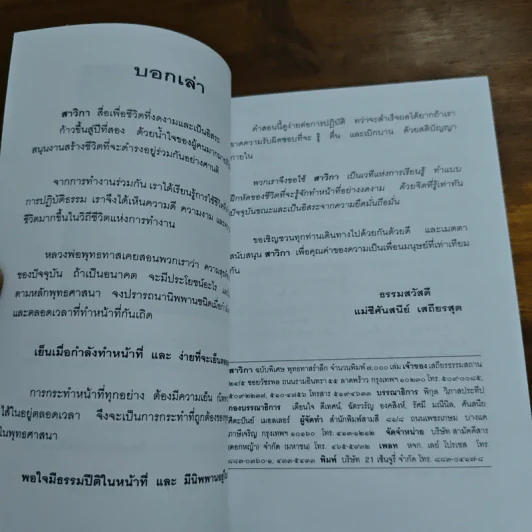 บอกเล่า
สาวิกา สื่อเพื่อชีวิตที่งดงามและเป็นอิสระ
ก้าวขึ้นสู่ปีที่สอง ด้วยน้ำใจของผู้คนมากมาย
สนุนงานสร้างชีวิตที่จะดำรงอยู่ร่วมกันอย่างศานติ
จากการทำงานร่วมกัน เราได้เรียนรู้การใช้ชีวิต
การปฏิบัติธรรม เราจึงได้เห็นความดี ความงาม
ชีวิตมากขึ้นในวิถีชีวิตแห่งการทำงาน
หลวงพ่อพุทธทาสเคยสอนพวกเราว่า
ของปัจจุบัน ถ้าเป็นอนาคต จะมีประโยชน์อะไร
ตามหลักพุทธศาสนา จงปรารถนานิพพานชนิด
และตลอดเวลาที่ทำหน้าที่กันเถิด
เย็นเมื่อกำลังทำหน้าที่ และ ง่ายที่จะเย็น
การกระทำหน้าที่ทุกอย่าง ต้องมีความเย็น
ได้ในอยู่ตลอดเวลา จึงจะเป็นการกระทำที่ถูกต้อง
ในพุทธศาสนา
พอใจมีธรรมปีติในหน้าที่ และ มีนิพพาน
คำสอนนี้ดูง่ายต่อการปฏิบัติ ทว่าจะสำเร็จผลได้ยากถ้าเรา
ขาดความรับผิดชอบที่จะ รู้ ตื่น และเบิกบาน ด้วยสติปัญญา
ภายใน
พวกเราจึงขอใช้ สาวิกา เป็นเวทีแห่งการเรียนรู้ ทำแบบ
ฝึกหัดของชีวิตที่จะรู้จักทำหน้าที่อย่างงดงาม ด้วยจิตที่รู้เท่าทัน
ปัจจุบันขณะและเป็นอิสระจากความยึดมั่นถือมั่น
ขอเชิญชวนทุกท่านเดินทางไปด้วยกันด้วยดี และเมตตา
สนับสนุน สาวิกา เพื่อคุณค่าของความเป็นเพื่อนมนุษย์ที่เท่าเทียม
กัน
ธรรมสวัสดี
แม่ชีศันสนีย์ เสถียรสุต
สาวิกา ฉบับพิเศษ พุทธทาสรำลึก จำนวนพิมพ์ ๓,๐๐๐ เล่ม เจ้าของ เสถียรธรรมสถาน
๒๔/๕ ซอยวัชรพล ถนนรามอินทรา ๕๕ ลาดพร้าว กรุงเทพฯ ๑๐๒๓๐ โทร.
บรรณาธิการ พิกุล วิภาสประทีป
กองบรรณาธิการ เตือนใจ ดีเทศน์,
ผู้จัดทำ สำนักพิมพ์สามสี ถนนเพชรเกษม บางแค
ภาษีเจริญ กรุงเทพฯ ๑๐๑๖๐ จัดจำหน่าย บริษัท สามัคคีสาร
(ดอกหญ้า) จำกัด (มหาชน) โทร. เพลท หจก. เลย์ โปรเซส โทร.
พิมพ์ บริษัท 21 เซ็นจูรี่ จำกัด โทร.